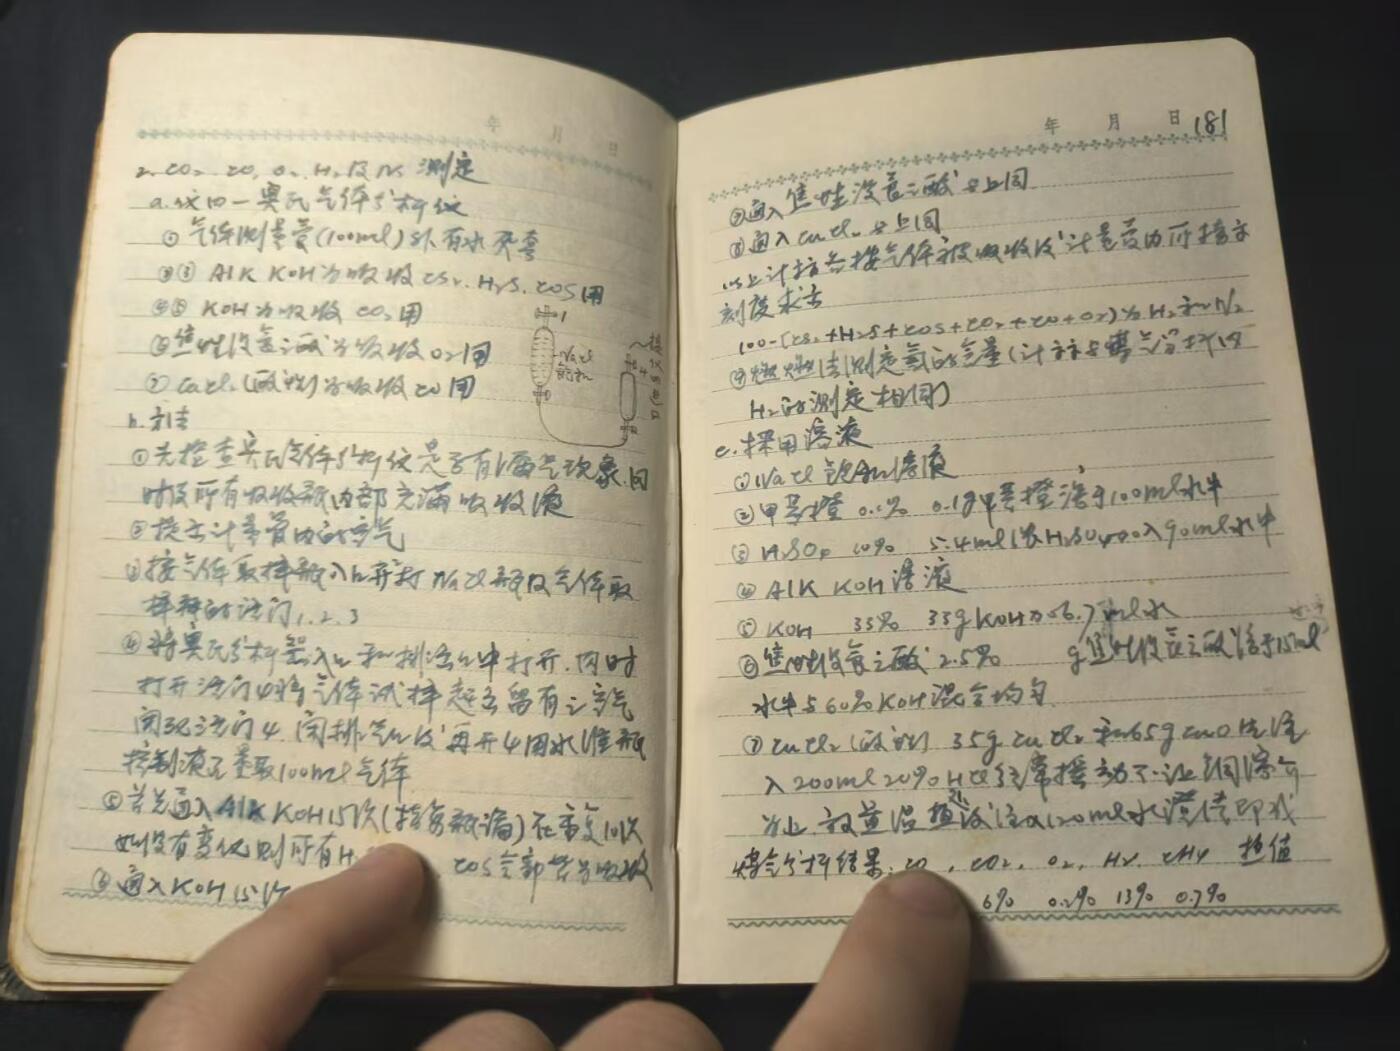 年 月 日
2. CO₂. CO, O₂. H₂ 及 N₂ 测定
a. 仪四一奥氏气体分析仪
① 气体测量管(100ml)外有水夹套
②③ AlK KOH为吸收CS₂. H₂S. COS用
④⑤ KOH为吸收CO₂用
⑥焦性没食子酸为吸收O₂用
⑦ CuCl₂(酸性)为吸收CO用
1
NaCl
4
b. 方法
①先检查奥氏气体分析仪是否有漏气现象.同
时及所有吸收瓶内部充满吸收液
②接出计量管内的空气
③接气体取样瓶入口并打NaCl瓶及气体取
样瓶的活门1, 2, 3
④将奥氏分析器入口和排活口中打开.同时
打开活门4将气体试样赶去留有之空气
闭死活门4. 闭排气口后再开4用水准瓶
控制液足量取100ml气体
⑤首先通入AlK KOH 15次(指多瓶满)在重复10次
如没有变化则所有H COS全部皆为吸收
⑥通入KOH 15次
年 月 日 181
⑦通入焦性没食子酸 与上同
⑧通入CuCl₂ 与上同
以上计算各按气体被吸收后计量管内所指示
刻度求出
100-(CS₂+H₂S+COS+CO₂+CO+O₂)为H₂和N₂
⑨燃烧法测定氢的含量(计算与煤气分析内
H₂的测定相同)
c. 采用溶液
①NaCl 饱和溶液
②甲基橙 0.1% 0.1g甲基橙溶于100ml水中
③ H₂SO₄ 10% 5.4ml浓H₂SO₄加入90ml水中
④ AlK KOH溶液
⑤ KOH 33% 33gKOH加66.7ml水
⑥焦性没食子酸 2.5% g焦性没食子酸溶于15ml
水中与60%KOH混合均匀
⑦ CuCl₂(酸性) 35g CuCl₂和65g CuO先注
入200ml 20%HCl经常摇动下.让铜溶介
为止.放置温摇后注入120ml水澄清即成
煤气分析结果: CO, CO₂, O₂, H₂. CH₄ 热值
6% 0.2% 13% 0.7%